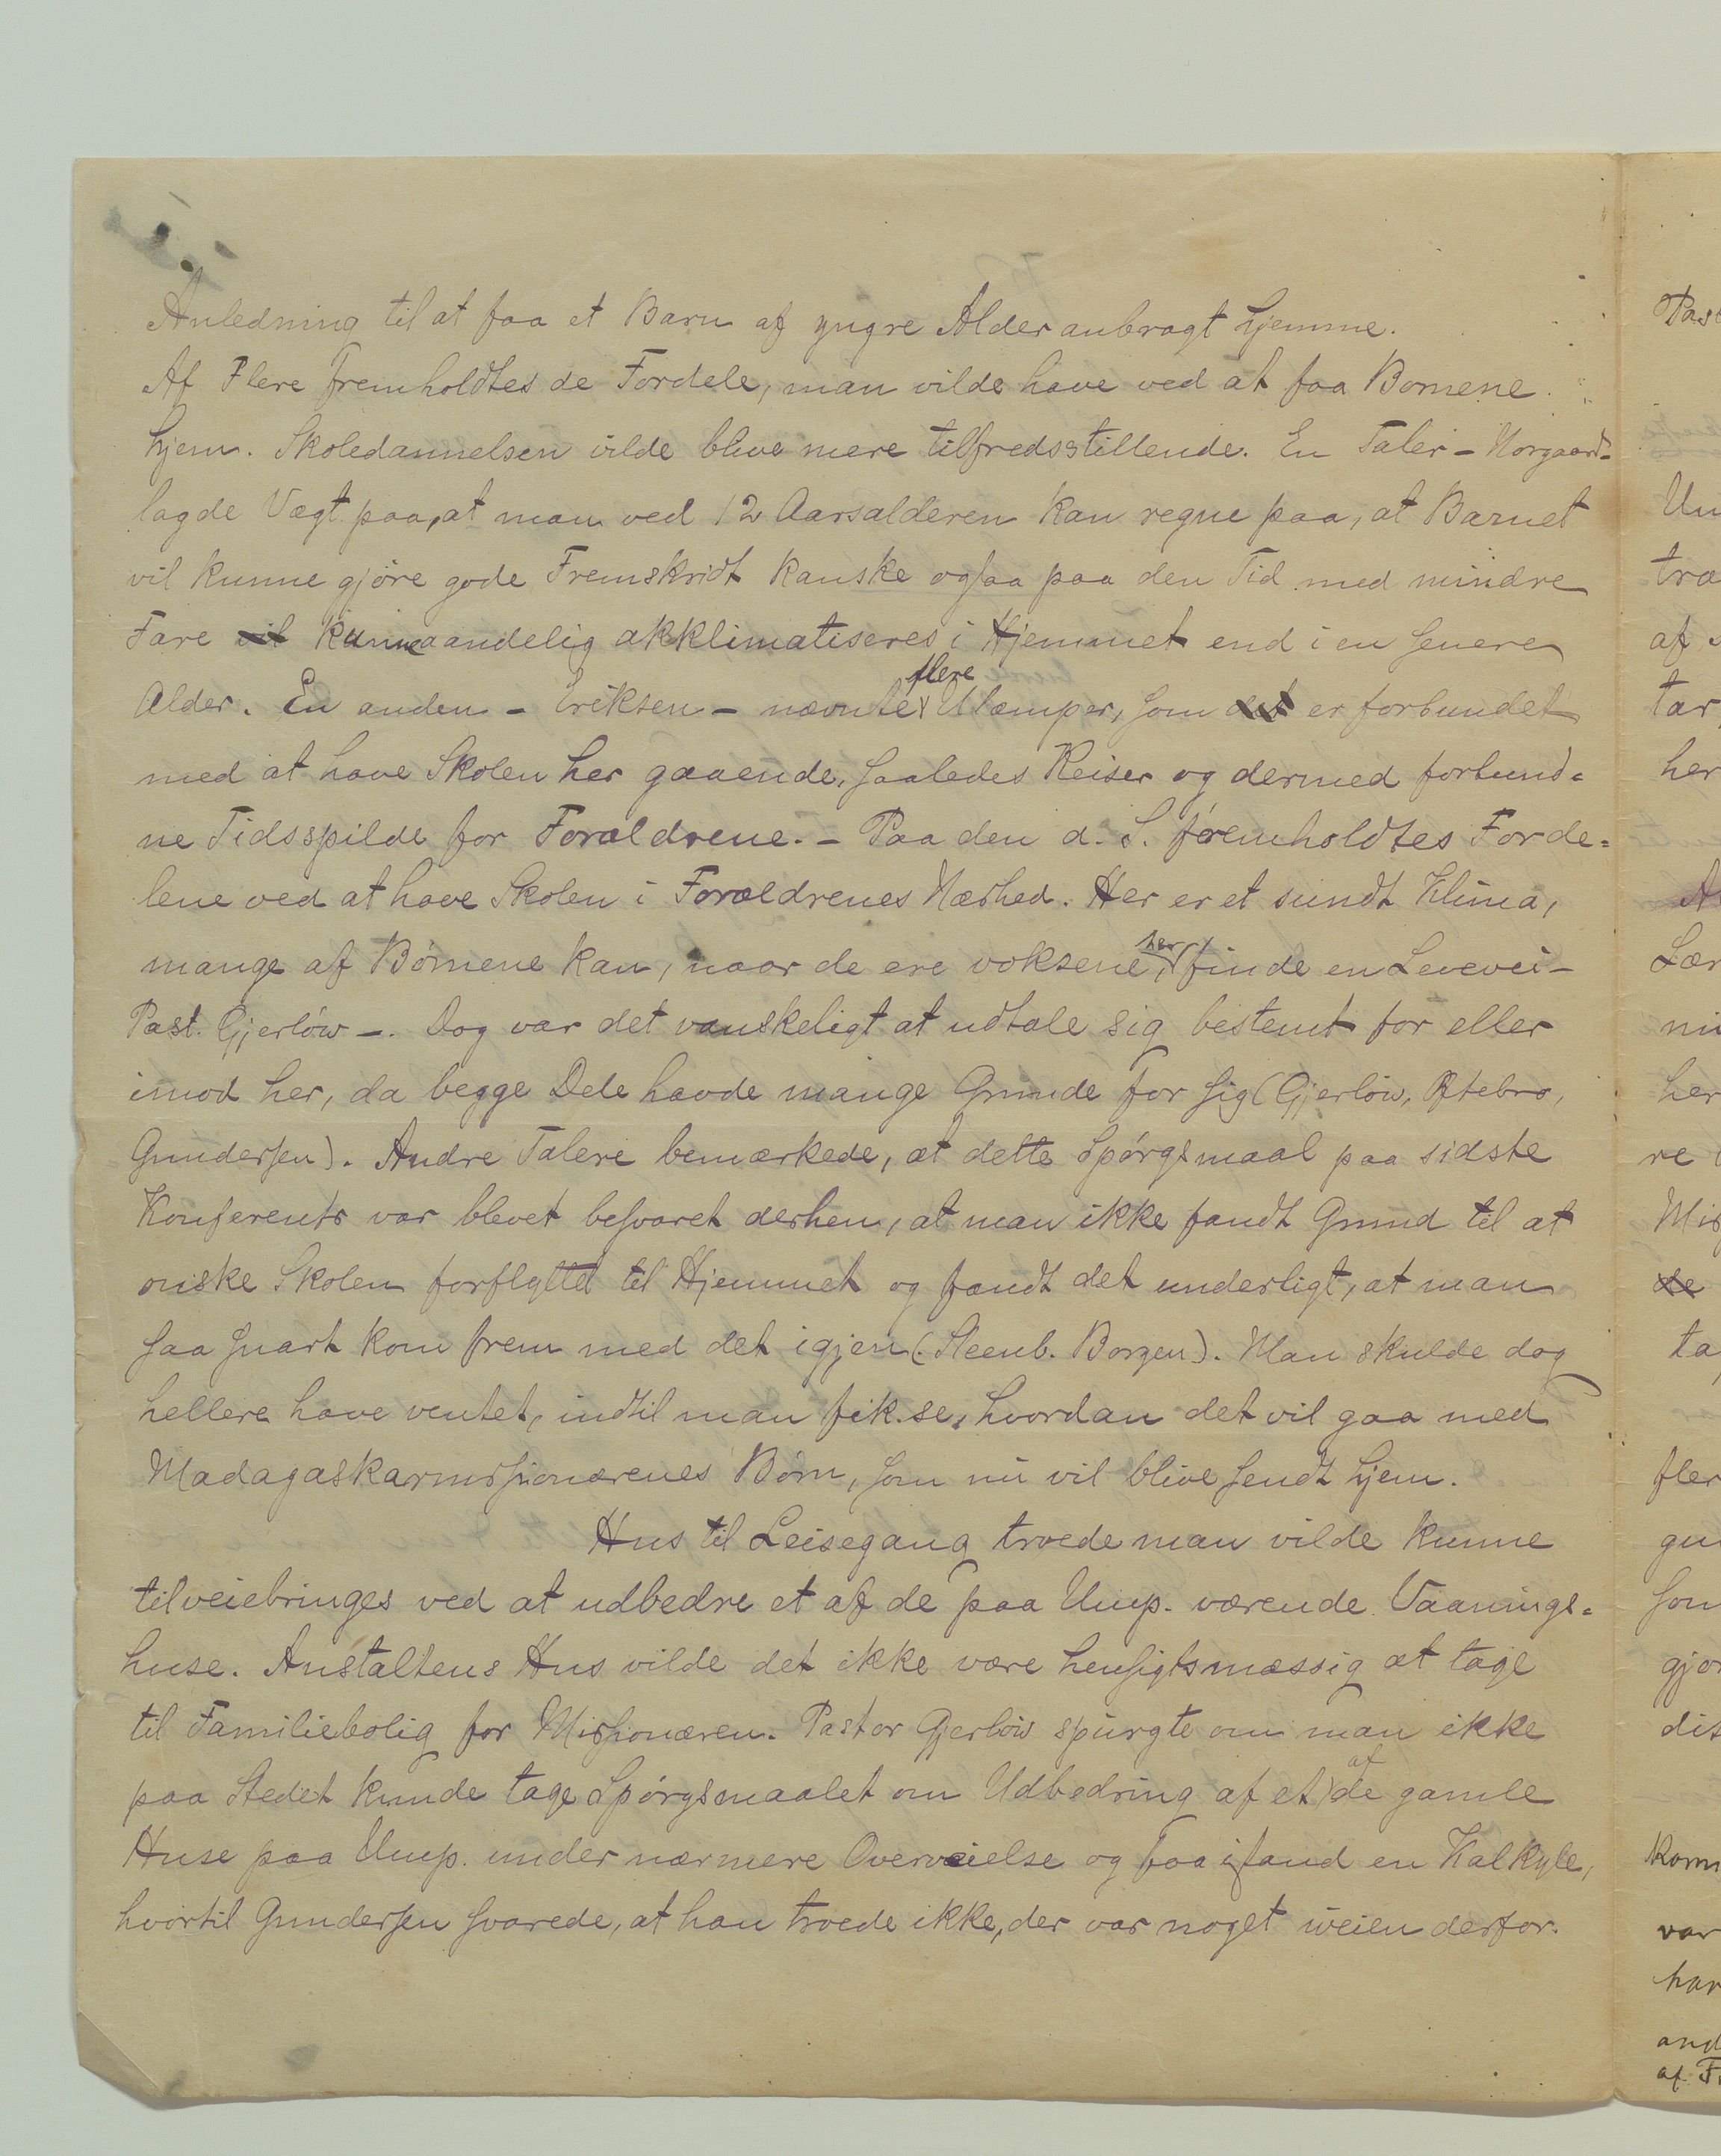 Anledning til at faa et Barn af yngre Alder anbragt hjemme.
Af Flere fremholdtes de Fordele, man vilde have ved at faa Børnene
hjem. Skoledannelsen vilde blive mere tilfredsstillende. En Taler – Norgaard –
lagde Vægt paa, at man ved 12 Aarsalderen kan regne paa, at Barnet
vil kunne gjöre gode Fremskridt kanske ogsaa paa den Tid med mindre
Fare vil kunne aandelig akklimatiseres i Hjemmet end i en senere
Alder. En anden – Eriksen – nævnte flere Ulæmper, som det er forbundet
med at have Skolen her gaaende, saaledes Reiser og dermed forbund=
ne Tidsspilde for Forældrene. – Paa den a. S. fremholdtes Forde=
lene ved at have Skolen i Forældrenes Nærhed. Her er et sundt Klima,
mange af Börnene kan, naar de ere voksene, her finde en Levevei –
Past. Gjerlöw –. Dog var det vanskeligt at udtale sig bestemt for eller
imod her, da begge Dele havde mange Grunde for sig (Gjerlöw, Oftebro,
Gundersen). Andre Talere bemærkede, at dette Spörgsmaal paa sidste
Konferents var blevet besvaret derhen, at man ikke fandt Grund til at
önske Skolen forflyttet til Hjemmet og fandt det underligt, at man
saa snart kom frem med det igjen (Steenb. Borgen). Man skulde dog
hellere have ventet, indtil man fik se, hvordan det vil gaa med
Madagaskarmissionærenes Börn, som nu vil blive sendt hjem.
Hus til Leisegang troede man vilde kunne
tilveiebringes ved at udbedre et af de paa Ump. værende Vaanings=
huse. Anstaltens Hus vilde det ikke være hensigtsmæssig at tage
til Familiebolig for Missionæren. Pastor Gjerlöw spurgte om man ikke
paa Stedet kunde tage Spörgsmaalet om Udbedring af et af de gamle
Huse paa Ump. under nærmere Overveielse og faa istand en Kalkyle,
hvortil Gundersen svarede, at han troede ikke, der var noget iveien derfor.
Un
af
tar
her
Lær
her
re
Mis
de
ta
fler
som
var
har